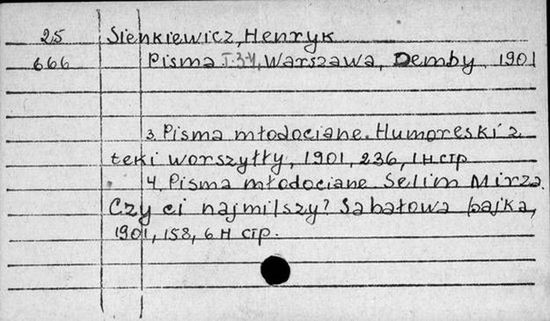 25 Sienkiewicz, Henryk
666 Pisma Warszawa, Demby 1901
3. Pisma młodociane. Humoreski z
teki worszyłły, 1901, 236, 1 н стр
4. Pisma młodociane Selim Mirza.
Czy ci najmilszy? Sabałowa bajka,
1901, 158, 6 н стр.